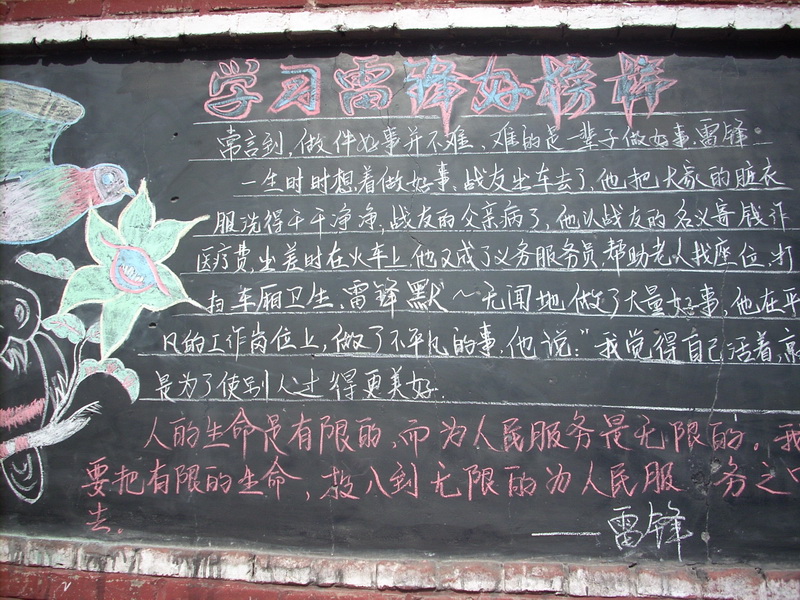 学习雷锋好榜样
常言到,做件好事并不难、难的是一辈子做好事.雷锋
一生时时想着做好事、战友出车去了,他把大家的脏衣
服洗得干干净净,战友的父亲病了,他以战友的名义寄钱诈
医疗费,出差时在火车上,他又成了义务服务员,帮助老人找座位,打
扫车厢卫生,雷锋默~无闻地做了大量好事,他在平
凡的工作岗位上,做了不平凡的事,他说:"我觉得自己活着,
是为了使别人过得更美好.
人的生命是有限的,而为人民服务是无限的。我
要把有限的生命,投入到无限的为人民服务之中
去。
——雷锋